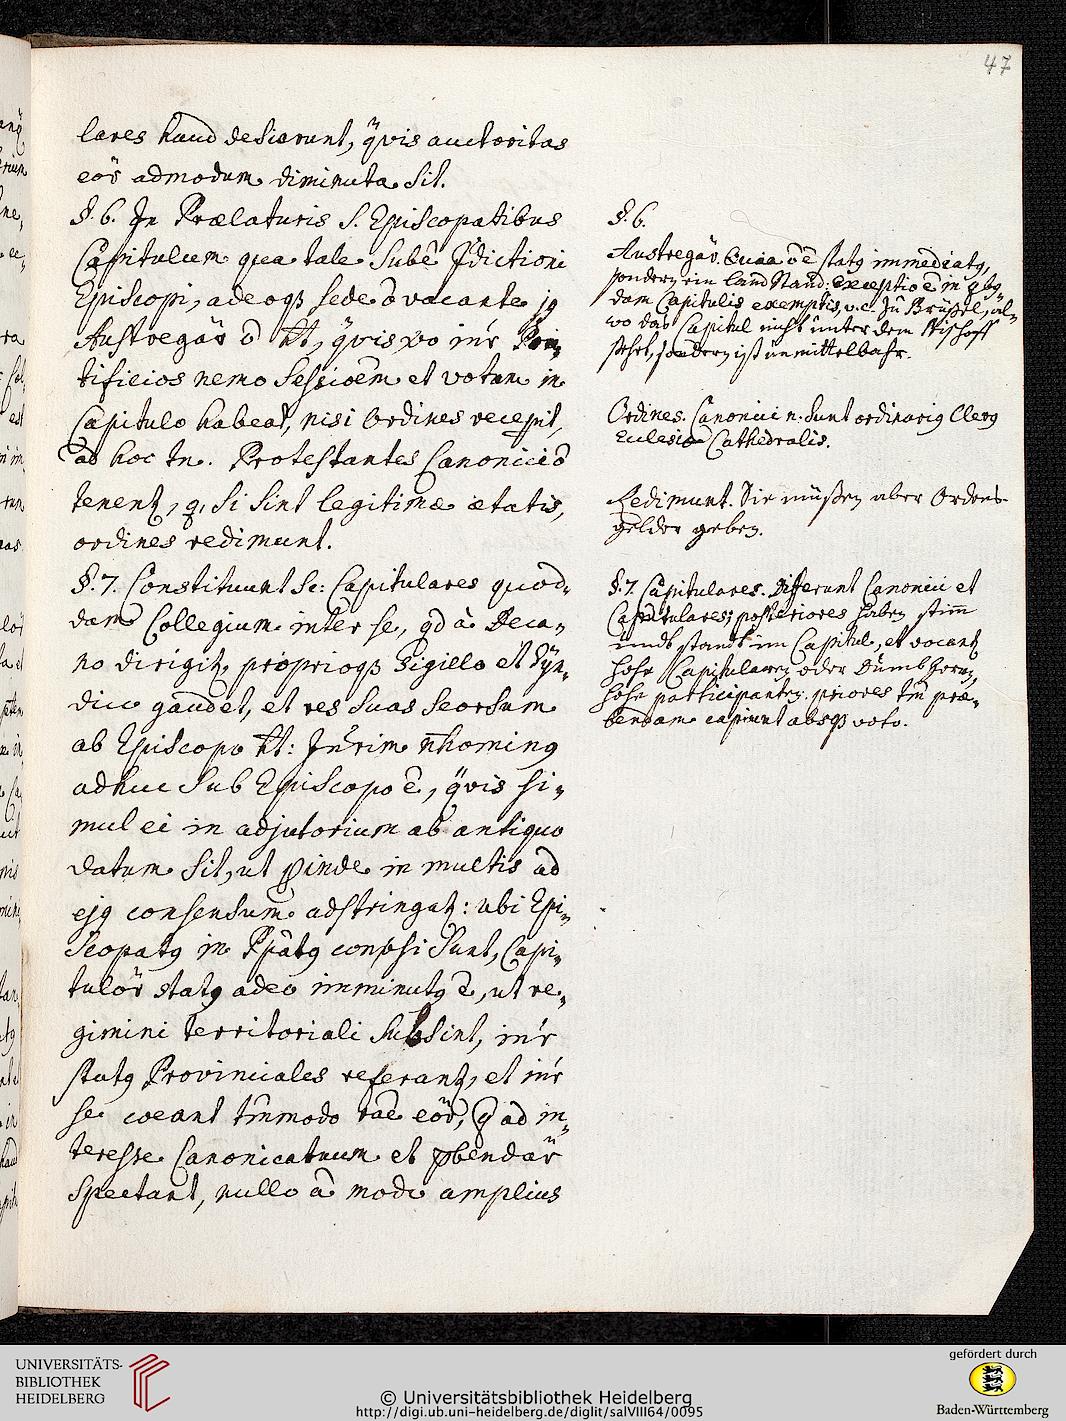 47
lares haud desierunt, q̃vis auctoritas
eor̃ admodum diminuta sit.
§. 6. In Prælaturis s. Episcopatibus
Capitulum qua tale subẽ Jr̃dictioni
Episcopi, adeoqȝ sede õ vacante
Austregar̃ õ ht, q̃vis
tificios nemo Sessioẽm et votum in
Capitulo habeat, nisi Ordines
ad hoc tn. Protestantes Canonici õ
tenent, si sint legitimæ ætatis,
ordines redimunt.
§. 7. Constituunt sc: Capitulares quod„
dam Collegium inter se, qd à Deca„
no dirigit, proprioqȝ Sigillo et Syn„
dico gaudet, et res suas seorsum
ab Episcopo ht: Int̃rim ñhominus
adhuc sub Episcopo ẽ, q̃vis si„
mul ei in adjutorium ab antiquo
datum sit, ut in multis ad
ejq consensum adstringat: ubi Epi„
scopatq in conṽsi sunt, Capi„
tulor̃ statq adeo imminutq ẽ, ut re„
gimini territoriali subsint, int̃r
statq Provinciales referant, et int̃r
se coeant tm̃modo eor̃, q̃ ad in„
teresse Canonicatuum et pbendar̃
spectant, nullo modo amplius
§. 6.
Austregar̃. Quia õ ẽ statq immediatq,
sondern ein Land Stand: Exceptio ẽ in qbq„
dam Capitulis exemptis, v.c. Zu Brüssel, al„
wo das Capitul nicht unter dem Bischoff
stehet, sondern ist unmittelbahr.
Ordines. Canonici n. sunt ordinariq Clerq
Ecclesiæ Cathedralis.
Redimunt. Sie müßen aber Ordens-
gelder geben.
§. 7. Capitulares. Differunt Canonici et
Capitulares; posteriores haben stim̃
undt standt im Capitul, et vocant
hohe Capitularen oder Dumbherrn,
hohe participanten. priores tm̃ præ„
bendam capiunt absqȝ voto.
UNIVERSITÄTS-
BIBLIOTHEK
HEIDELBERG
© Universitätsbibliothek Heidelberg
http://digi.ub.uni-heidelberg.de/diglit/salVIII64/0095
gefördert durch
Baden-Württemberg